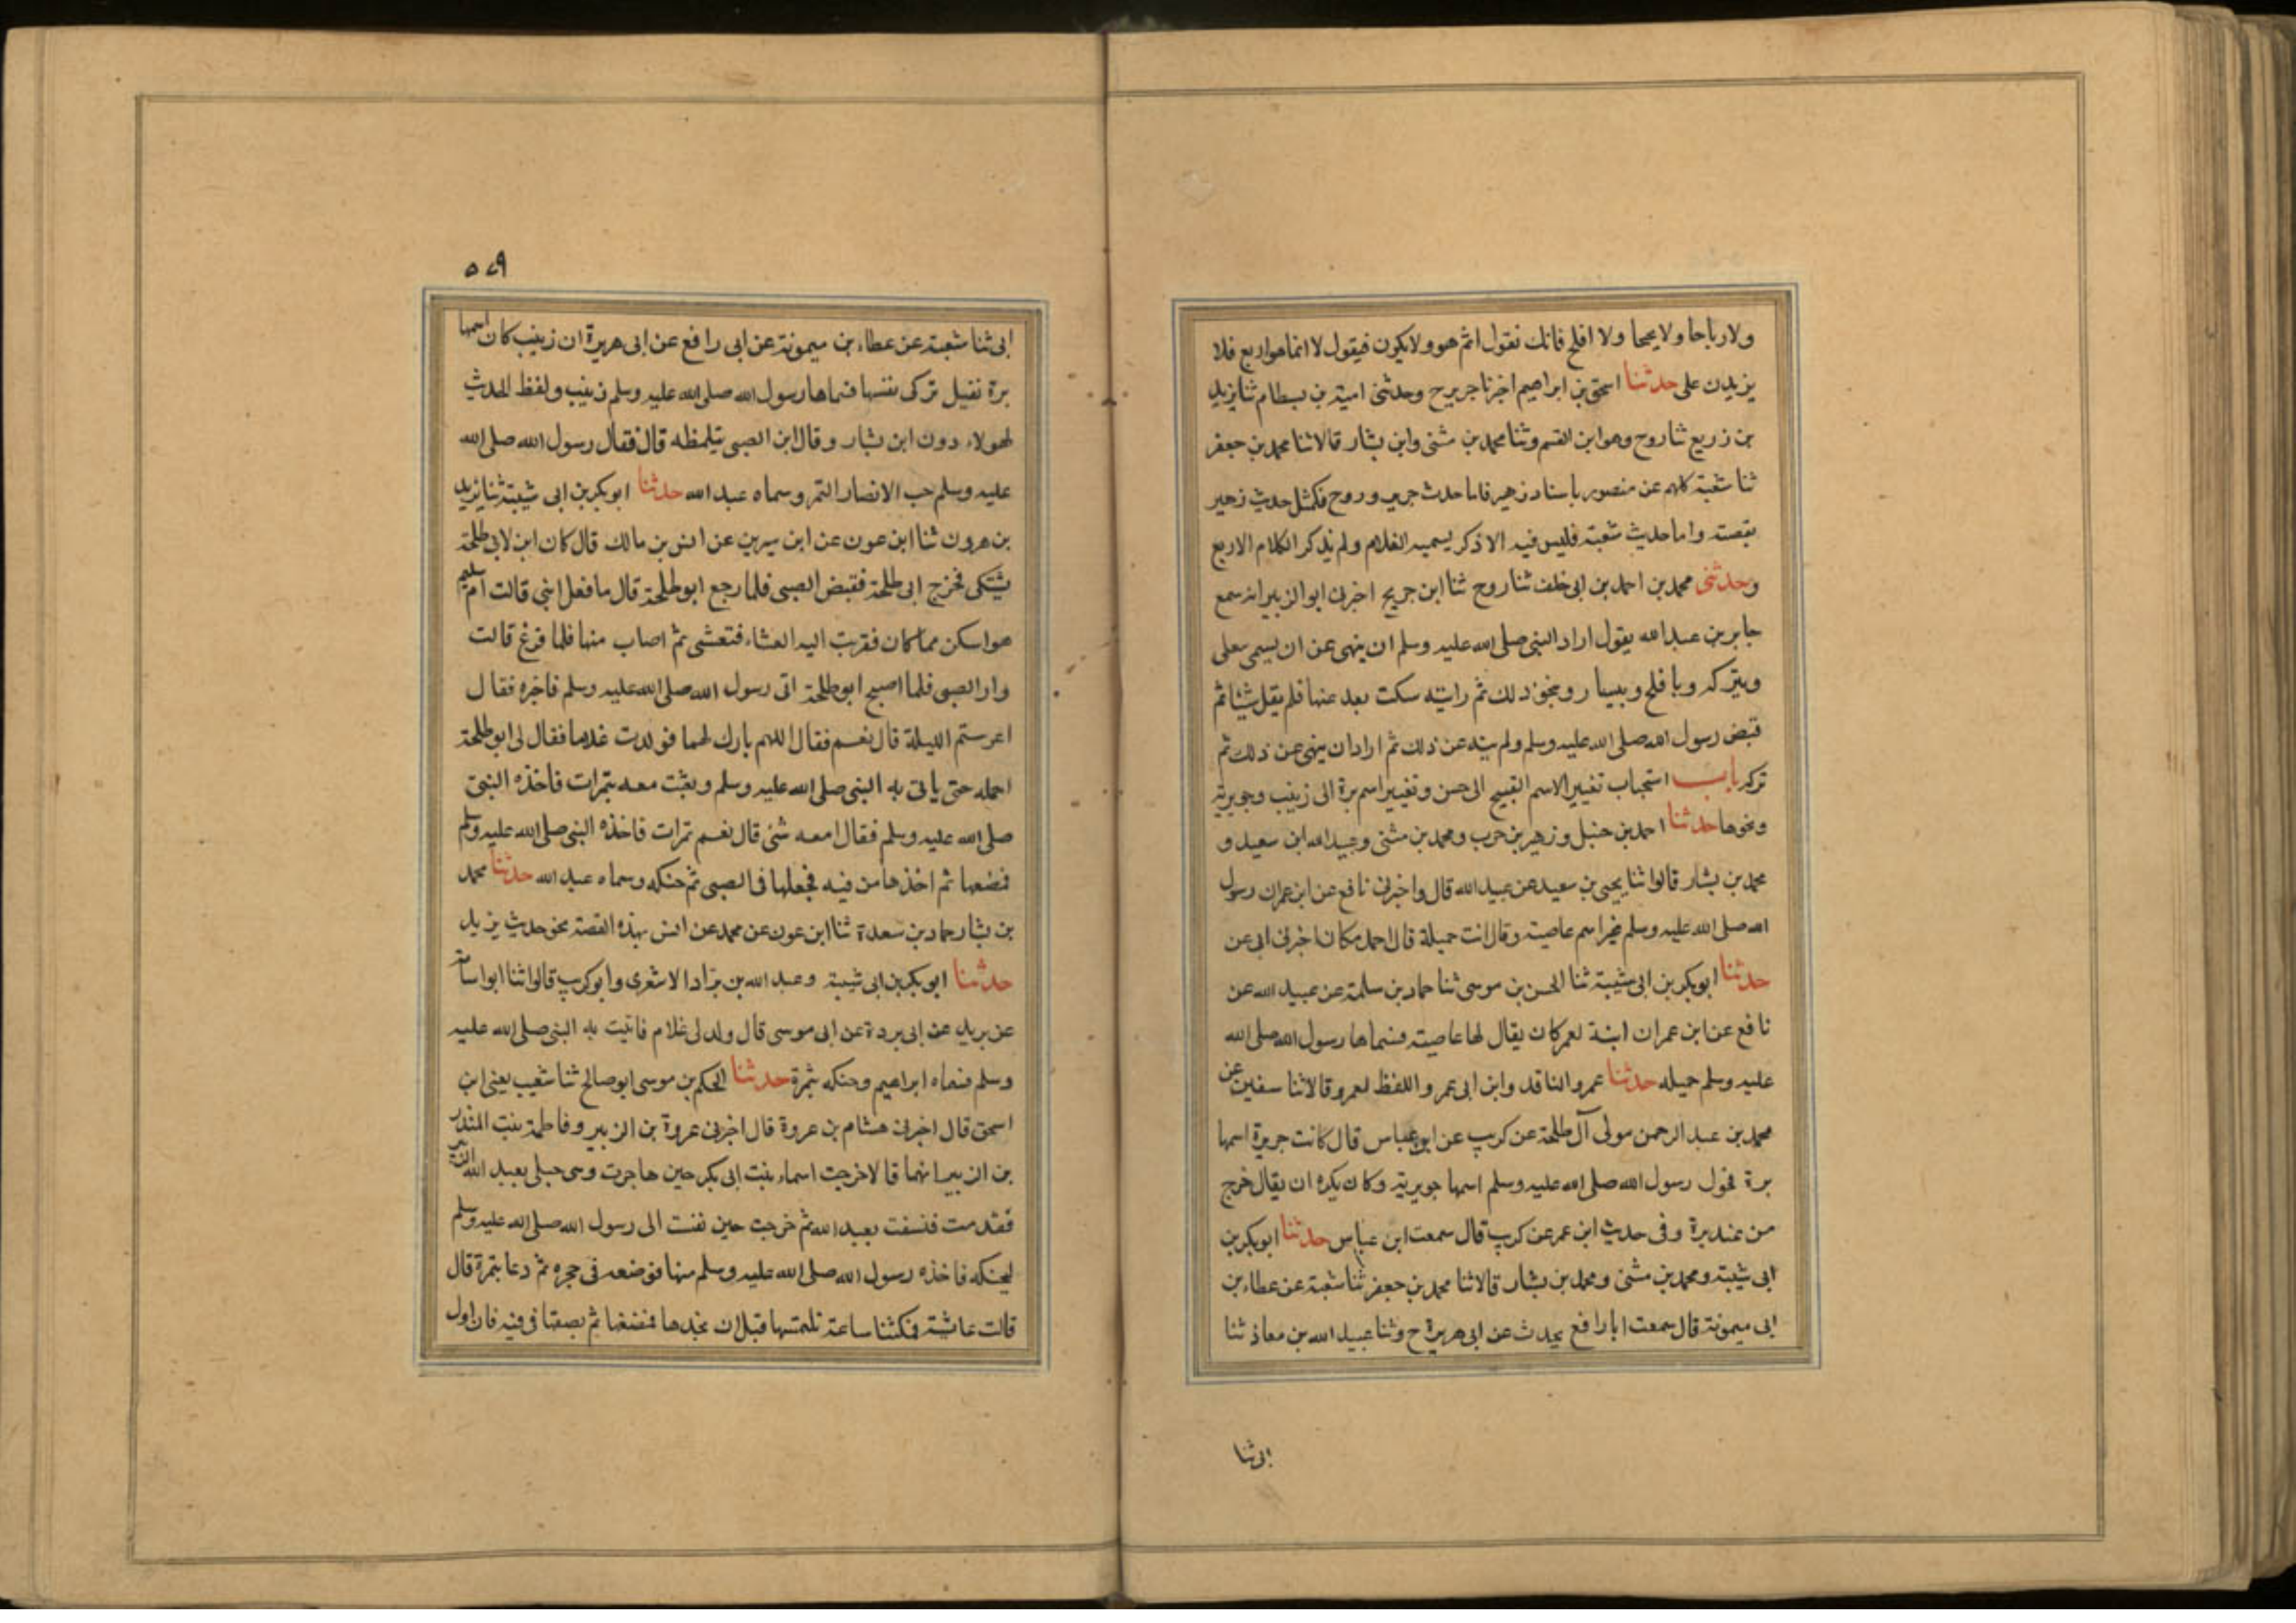 ولا رباحا ولا يجحا ولا افلح فانك تقول اثم هو ولا يكون فيقول لا انما هو اربع فلا
يزيدن على حدثنا اسحق بن ابراهيم اخبرنا جرير ح وحدثنى امية بن بسطام ثنا يزيد
بن زريع ثنا روح وهو ابن القسم وثنا محمد بن مثنى وابن بشار قالا ثنا محمد بن جعفر
ثنا شعبة كلهم عن منصور باسناد زهير فاما حدث جرير وروح فكمثل حديث زهير
بقصته واما حديث شعبة فليس فيه الا ذكر يسميه الغلام ولم يذكر الكلام الاربع
وحدثنى محمد بن احمد بن ابى خلف ثنا روح ثنا ابن جريج اخبرنى ابو الزبير انه سمع
جابر بن عبد الله يقول اراد النبى صلى الله عليه وسلم ان ينهى عن ان يسمى بيعلى
وببركة وبافلح وبيسار وبنحو ذلك ثم رايته سكت بعد عنها فلم يقل شيئا ثم
قبض رسول الله صلى الله عليه وسلم ولم ينه عن ذلك ثم اراد ان ينهى عن ذلك ثم
تركه باب استحباب تغيير الاسم القبيح الى حسن وتغيير اسم برة الى زينب وجويرية
ونحوها حدثنا احمد بن حنبل وزهير بن حرب ومحمد بن مثنى وعبيد الله ابن سعيد و
محمد بن بشار قالوا ثنا يحيى بن سعيد عن عبيد الله قال واخبرنى نافع عن ابن عمران رسول
الله صلى الله عليه وسلم غير اسم عاصية وقال انت جميلة قال احمد مكان اخبرنى ابى عن
حدثنا ابو بكر بن ابى شيبة ثنا الحسن بن موسى ثنا حماد بن سلمة عن عبيد الله عن
نافع عن ابن عمران ابنة لعمر كان يقال لها عاصية فسماها رسول الله صلى الله
عليه وسلم جميله حدثنا عمرو الناقد وابن ابى عمر واللفظ لعمرو قالا ثنا سفين عن
محمد بن عبد الرحمن مولى آل طلحة عن كريب عن ابن عباس قال كانت جويرة اسمها
برة فحول رسول الله صلى الله عليه وسلم اسمها جويرية وكان يكره ان يقال خرج
من عند برة وفى حديث ابن عمر عن كريب قال سمعت ابن عباس حدثنا ابو بكر بن
ابى شيبة ومحمد بن مثنى ومحمد بن بشار قالا ثنا محمد بن جعفر ثنا شعبة عن عطاء بن
ابى ميمونة قال سمعت ابا رافع يحدث عن ابى هريرة ح وثنا عبيد الله بن معاذ ثنا
ابى ثنا
٥٧٩
ابى ثنا شعبة عن عطاء بن ميمونة عن ابى رافع عن ابى هريرة ان زينب كان اسمها
برة فقيل تزكى نفسها فسماها رسول الله صلى الله عليه وسلم زينب ولفظ الحديث
لهولاء دون ابن بشار وقال ابن الصبى يتلمظه قال فقال رسول الله صلى الله
عليه وسلم حب الانصار التمر وسماه عبد الله حدثنا ابو بكر بن ابى شيبة ثنا يزيد
بن هرون ثنا ابن عون عن ابن سيرين عن انس بن مالك قال كان ابن لابى طلحة
يشتكى فخرج ابى طلحة فقبض الصبى فلما رجع ابو طلحة قال ما فعل ابنى قالت ام سليم
هو اسكن مما كان فقربت اليه العشاء فتعشى ثم اصاب منها فلما فرغ قالت
وار الصبى فلما اصبح ابو طلحة اتى رسول الله صلى الله عليه وسلم فاخبره فقال
اعرستم الليلة قال نعم فقال اللهم بارك لهما فولدت غلاما فقال لى ابو طلحة
احمله حتى ياتى به النبى صلى الله عليه وسلم وبعثت معه بتمرات فاخذه النبى
صلى الله عليه وسلم فقال امعه شئ قال نعم تمرات فاخذه النبى صلى الله عليه وسلم
فمضغها ثم اخذها من فيه فجعلها فى الصبى ثم حنكه وسماه عبد الله حدثنا محمد
بن بشار حماد بن سعدة ثنا ابن عون عن محمد عن انس بهذه القصة نحو حديث يزيد
حدثنا ابو بكر بن ابى شيبة وعبد الله بن براد الاشعرى وابو كريب قالوا ثنا ابو اسامة
عن بريد عن ابى بردة عن ابى موسى قال ولد لى غلام فاتيت به النبى صلى الله عليه
وسلم فسماه ابراهيم وحنكه بتمرة حدثنا الحكم بن موسى ابو صالح ثنا شعيب يعنى ابن
اسحق قال اخبرنى هشام بن عروة قال اخبرنى عروة بن الزبير وفاطمة بنت المنذر
بن الزبير انهما قالا خرجت اسماء بنت ابى بكر حين هاجرت وهى حبلى بعبد الله الزبير
فقدمت فنسفت بعبد الله ثم خرجت حين نفست الى رسول الله صلى الله عليه وسلم
ليحنكه فاخذه رسول الله صلى الله عليه وسلم منها فوضعه فى حجره ثم دعا بتمرة قال
قالت عائشة فمكثنا ساعة نلتمسها قبل ان نجدها فمضغها ثم بصقها فى فيه فان اول